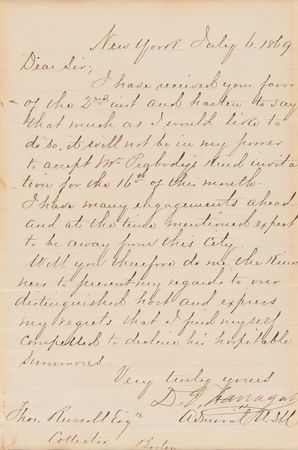 New York July 6, 1869
Dear Sir;
I have received your favor
of the 2nd inst and hasten to say
that much as I would like to
do so, it will not be in my power
to accept Mr Peabody's kind invita
tion for the 16th of this month.
I have many engagements ahead
and at the time mentioned expect
to be away from this City.
Will you therefore do me the kind
ness to present my regards to our
distinguished host and express
my regrets that I find myself
compelled to decline his hospitable
summons.
Very truly yours
D. G. Farragut
Thos. Russell Esqre Admiral U.S.N
Collector Boston